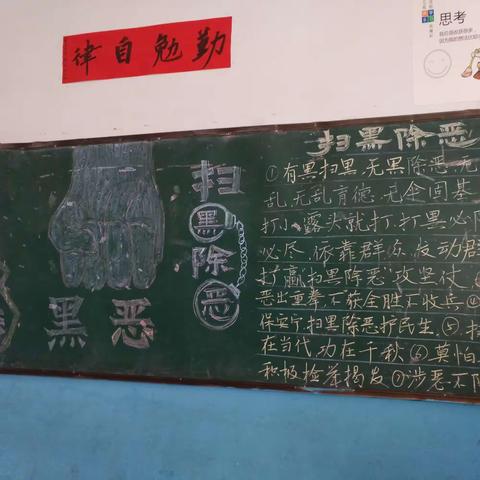 勤勉自律
思考
扫黑除恶
黑恶
扫黑除恶
①有黑扫黑,无黑除恶,无
乱,无乱育德,无全固基
打小,露头就打,打黑必
必尽,依靠群众,发动群
打赢“扫黑除恶”攻坚仗
恶出重拳不获全胜不收兵④
保安宁扫黑除恶护民生.⑤扫
在当代,功在千秋⑥莫怕
积极检举揭发⑦涉恶不